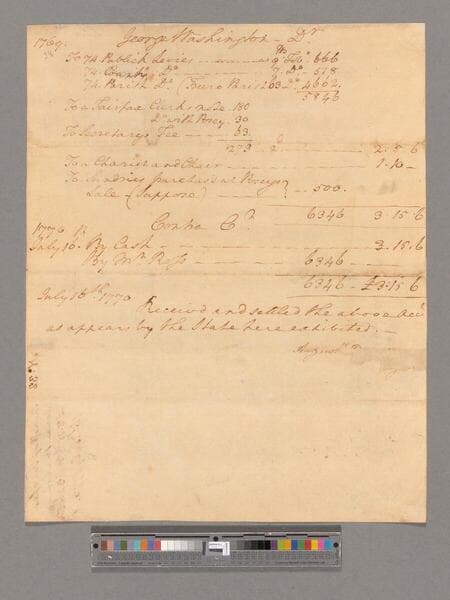 1769. George Washington - Dr
To 74 Publick Levies - - - - as 9 lbs Tobo. 666
74 County Do - - - 7 Do - 518
74 Parish Do - (Truro Parish) 63 Do 4662
5846
To a Fairfax Clerks note 180
Do with Posey 30
To Secretarys Fee - - - 63
273 - 2 2. 5. 6
To a Chariot and Chair - - - 1. 10 -
To Sundries purchasd at Poseys
Sale (Suppose) - - 500.
6346 3. 15. 6
1770 Contra Cr
July 16. By Cash - - - 3. 15. 6
By Mr Ross - - - 6346 -
6346 - £3. 15 6
July 16th 1770
Receivd and settled the above Acct
as appears by the State here exhibited. -